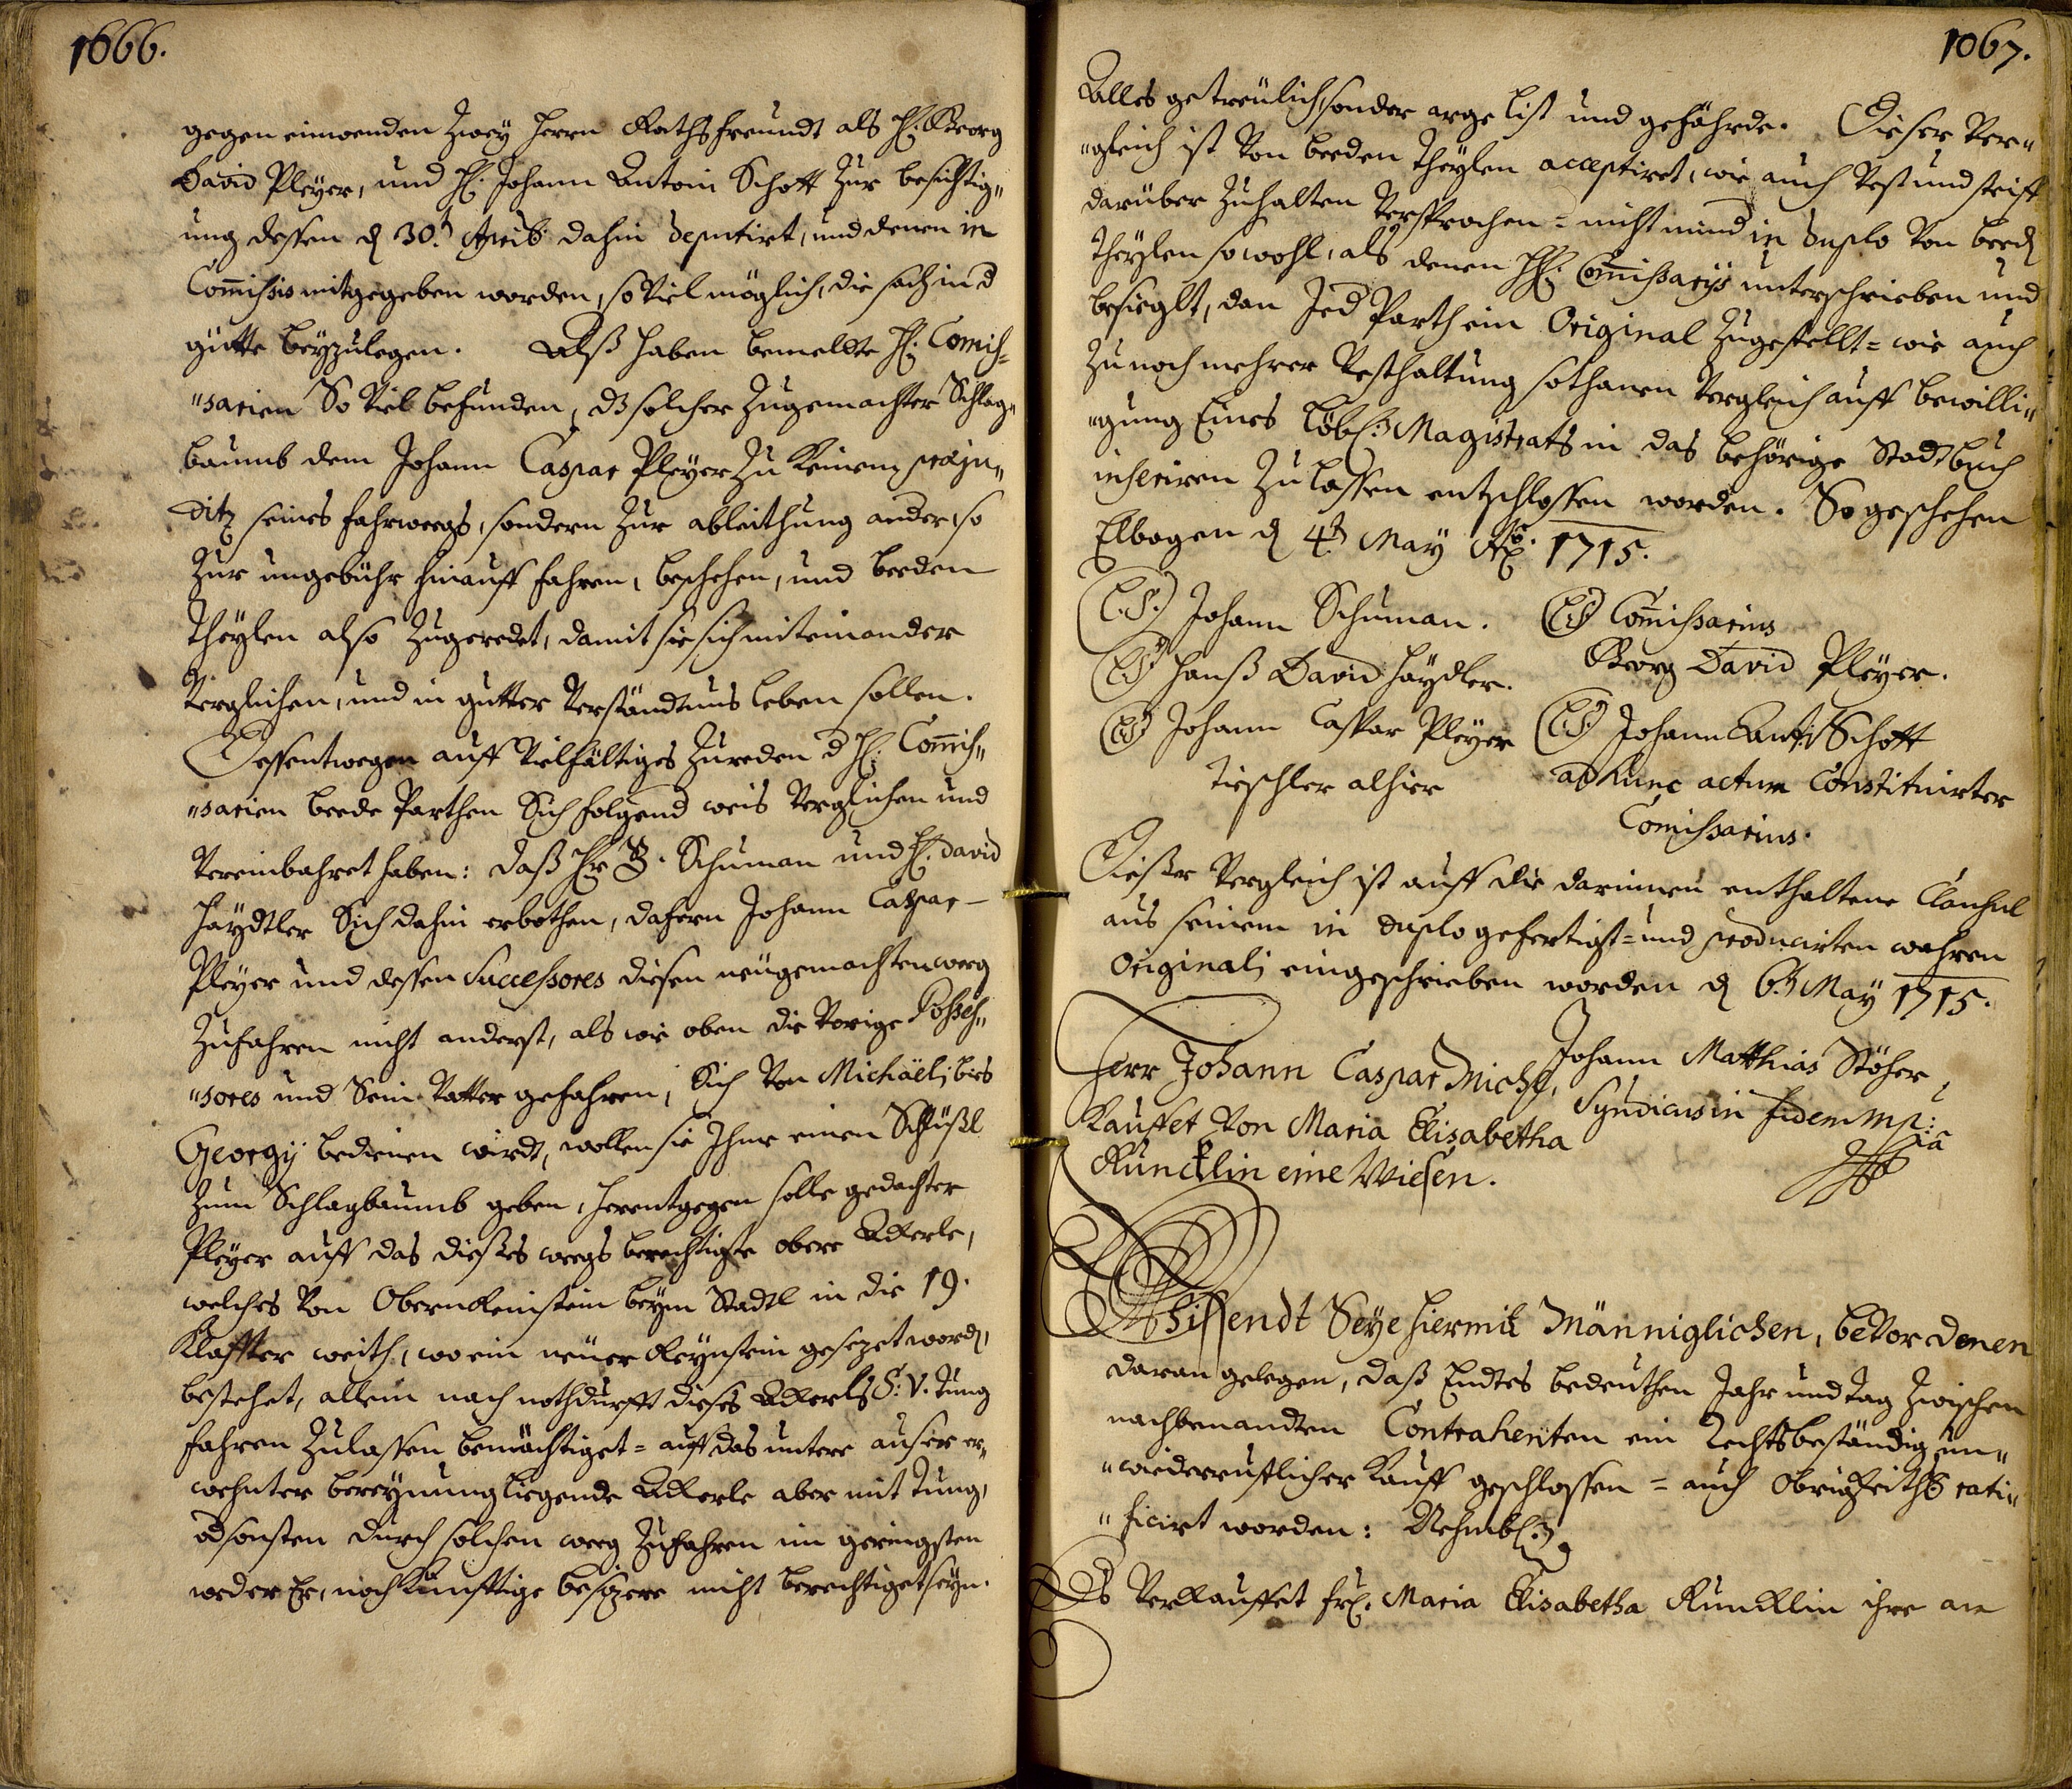 1666.
gegen einwenden Zwey Herrn Rathsfreundt als H: Georg
David Pleÿer, und H: Johann Antoni Schott Zur besichtig„
ung dessen d 30.t Aprib: dahin deputirt, und denen in
Com̃issis mitgegeben worden, so Viel möglich, die sach in d
gütte beÿzulegen. Alß haben bemeldte H: Comis„
„sarien So Viel befunden, dz solcher Zugemachter Schlag„
baumb dem Johann Caspar Pleÿer Zu Keinem præju„
ditz seines fahrweegs, sondern Zur ableithung ander, so
Zur ungebühr hinauff fahren, beschehen, und beeden
Theÿlen also Zugeredet, damit sie sich miteinander
Verglichen, und in gutter Verständtnus leben sollen.
Dessentwegen auff Vielfältiges Zureden d H: Com̃is„
„sarien beede Parthen Sich folgend weis Verglichen und
Vereinbahret haben: daß Hr B. Schuman und H: David
Haÿdtler Sich dahin erbothen, dafern Johann Caspar
Pleÿer und dessen Successores diesen neugemachten weeg
Zufahren nicht anderst, als wie oben die Vorige Posses„
„sores und Sein Vatter gefahren, Sich Von Michaëli bies
Georgÿ bedienen wirdt, wollen sie Ihme einen Schlüßl
Zum Schlagbaumb geben, herentgegen solle gedachter
Pleÿer auff das dießes weegs berechtigte obere Ackerle,
welches Von Obern Reinstein beÿm Stadtl in die 19.
Klaffter weith, wo ein neuer Reÿnstein gesezet word,
bestehet, allein nach nothdurfft dieses Ackerls S: V. Tung
fahren Zulassen bemächtiget = auff das untere auser er„
wehnter bereÿnung liegende Ackerle aber mit Tung,
od sonsten durch solchen weeg Zufahren im geringsten
weder Er, noch Künfftige besizere nicht berechtiget seÿn.
1067.
Alles getreulich, sonder arge list und gefährde. Dieser Ver„
„gleich ist Von beeden Theÿlen acceptiret, wie auch Vest und steiff
darüber Zuhalten Versprochen = nicht mind in duplo Von beed
Theÿlen sowohl, als denen HH: Com̃issarÿs unterschrieben und
besieglt, dan Jed Parth ein Original Zugestellt = wie auch
Zu noch mehrer Vesthaltung sothanen Vergleich auff bewilli„
„gung Eines Löbl: Magistrats in das behörige Stadtbuch
inseriren Zulassen entschlossen worden. So geschehen
Elbogen d 4.t May Ao. 1715.
(L.S.) Johann Schuman.
(L.S.) Hanß David Haÿdler.
(L.S.) Johann Caspar Pleÿer
Tieschler alhier
(L.S.) Com̃issarius
Georg David Pleÿer.
(L.S.) Johann Anth: Schott
ad hunc actum Constituirter
Comissarius.
Dießer Vergleich ist auff die darinnen enthaltene Clausul
aus seinem in duplo gefertigt= und producirten wahren
Originali eingeschrieben worden d 6.t May 1715.
Johann Matthias Stöhr
Syndicus in fidem mp:ia
Herr Johann Caspar Michl,
Kauffet Von Maria Elisabetha
Runcklin eine Wiesen.
Wissendt Seye hiermit Männiglichen, beVor denen
daran gelegen, daß Endtes bedeuthen Jahr und tag Zwischen
nachbenandten Contrahenten ein Rechtsbeständig, un„
„wiederruflicher Kauff geschlossen = auch obrigkeithl rati„
„ficirt worden: Nehmbl:
Es Verkauffet fr: Maria Elisabetha Runcklin ihre am